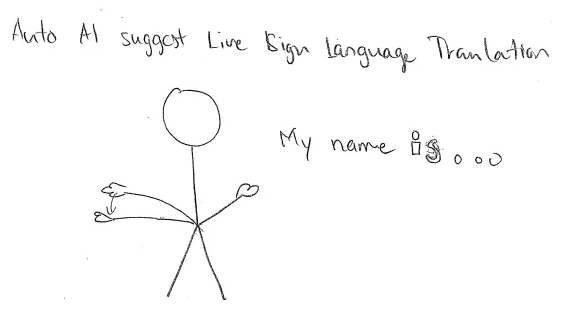 Auto AI suggest Live Sign Language Tranlation
My name is....